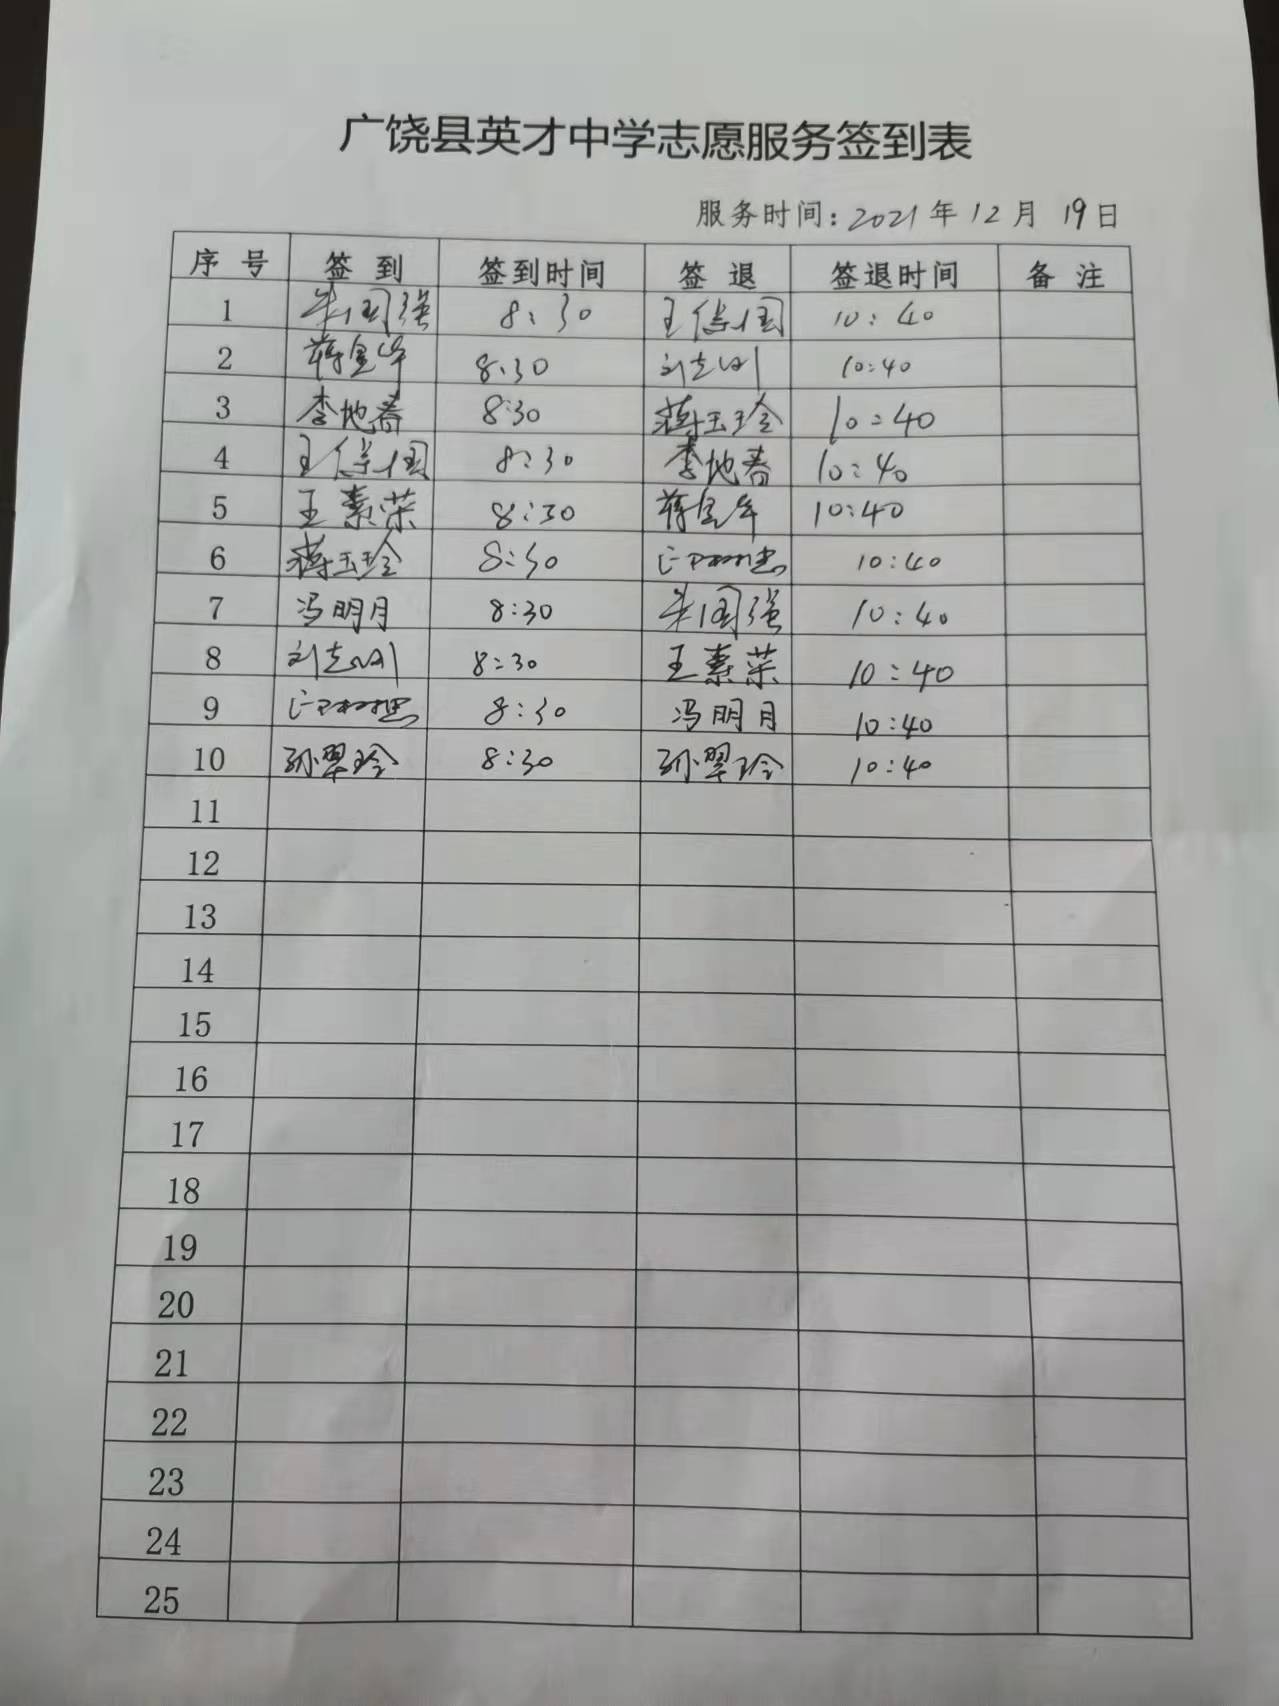 广饶县英才中学志愿服务签到表
服务时间: 2021年12月19日
序号 签到 签到时间 签退 签退时间 备注
1 朱国强 8:30 王传国 10:40
2 蒋宝华 8:30 刘志刚 10:40
3 李地春 8:30 蒋玉玲 10:40
4 王传国 8:30 李地春 10:40
5 王素荣 8:30 蒋宝华 10:40
6 蒋玉玲 8:30 10:40
7 冯明月 8:30 朱国强 10:40
8 刘志刚 8:30 王素荣 10:40
9 8:30 冯明月 10:40
10 孙翠玲 8:30 孙翠玲 10:40
11
12
13
14
15
16
17
18
19
20
21
22
23
24
25